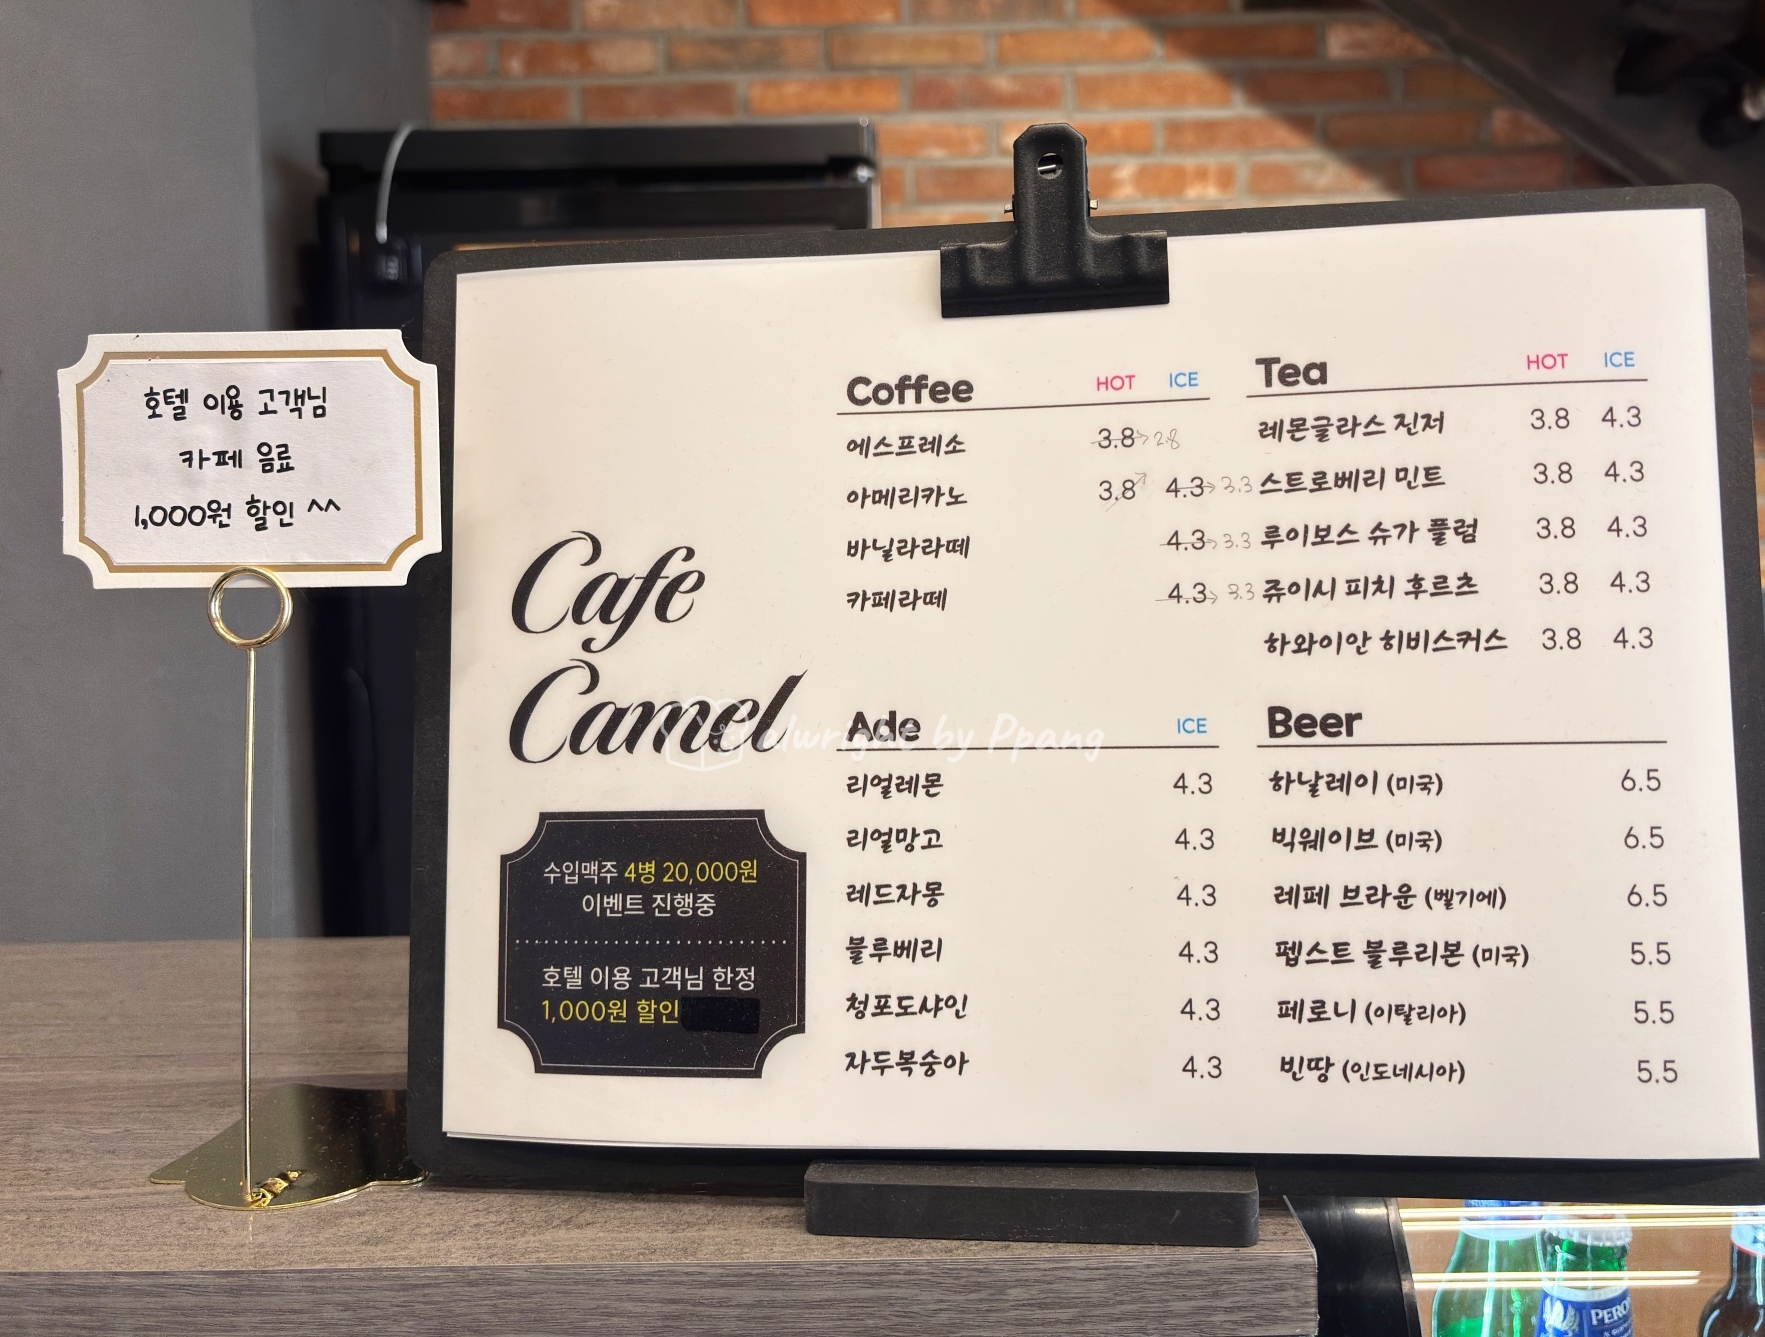 호텔 이용 고객님
카페 음료
1,000원 할인 ^^
Cafe
Camel
수입맥주 4병 20,000원
이벤트 진행중
호텔 이용 고객님 한정
1,000원 할인
Coffee HOT ICE
에스프레소 3.8→2.8
아메리카노 3.8 4.3→3.3
바닐라라떼 4.3→3.3
카페라떼 4.3→3.3
Tea HOT ICE
레몬글라스 진저 3.8 4.3
스트로베리 민트 3.8 4.3
루이보스 슈가 플럼 3.8 4.3
쥬이시 피치 후르츠 3.8 4.3
하와이안 히비스커스 3.8 4.3
Ade ICE
리얼레몬 4.3
리얼망고 4.3
레드자몽 4.3
블루베리 4.3
청포도샤인 4.3
자두복숭아 4.3
Beer
하날레이 (미국) 6.5
빅웨이브 (미국) 6.5
레페 브라운 (벨기에) 6.5
펩스트 블루리본 (미국) 5.5
페로니 (이탈리아) 5.5
빈땅 (인도네시아) 5.5
alwright by Ppang